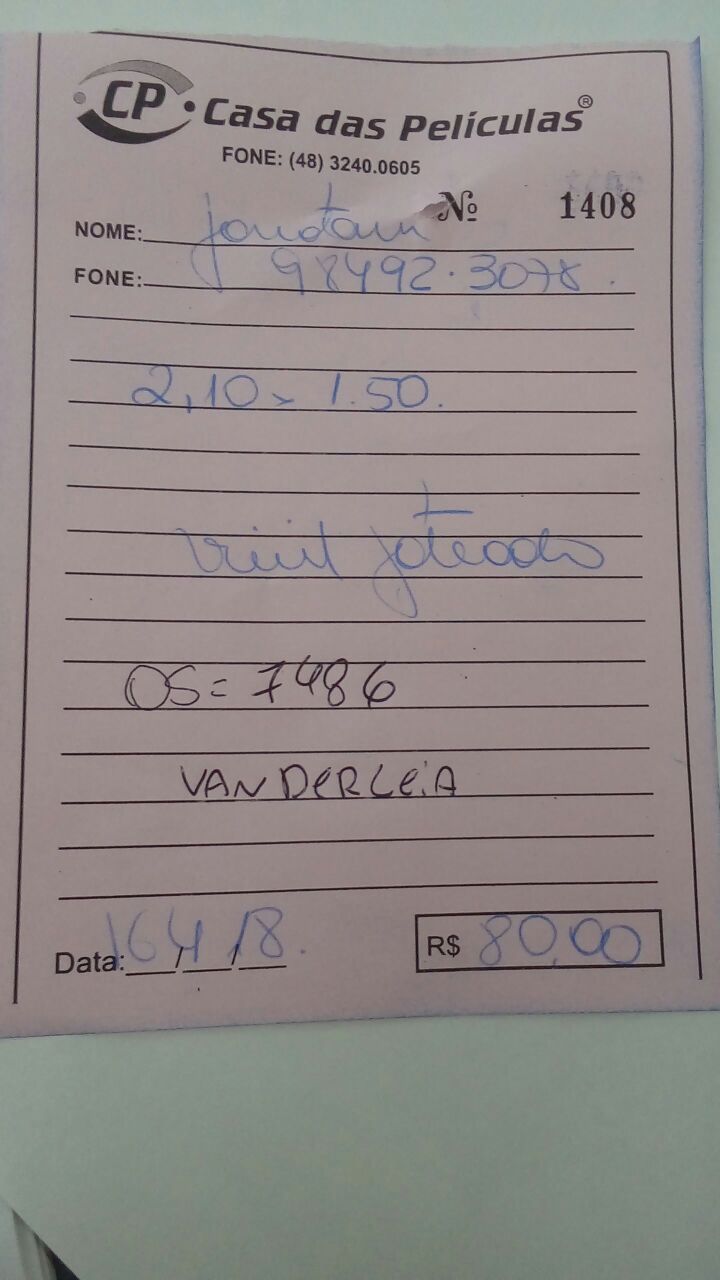 CP Casa das Películas®
FONE: (48) 3240.0605
Nº 1408
NOME:
FONE: 98492.3078.
2,10 x 1.50.
OS = 7486
VANDERLEiA
Data: 16/4/18.
R$ 80,00